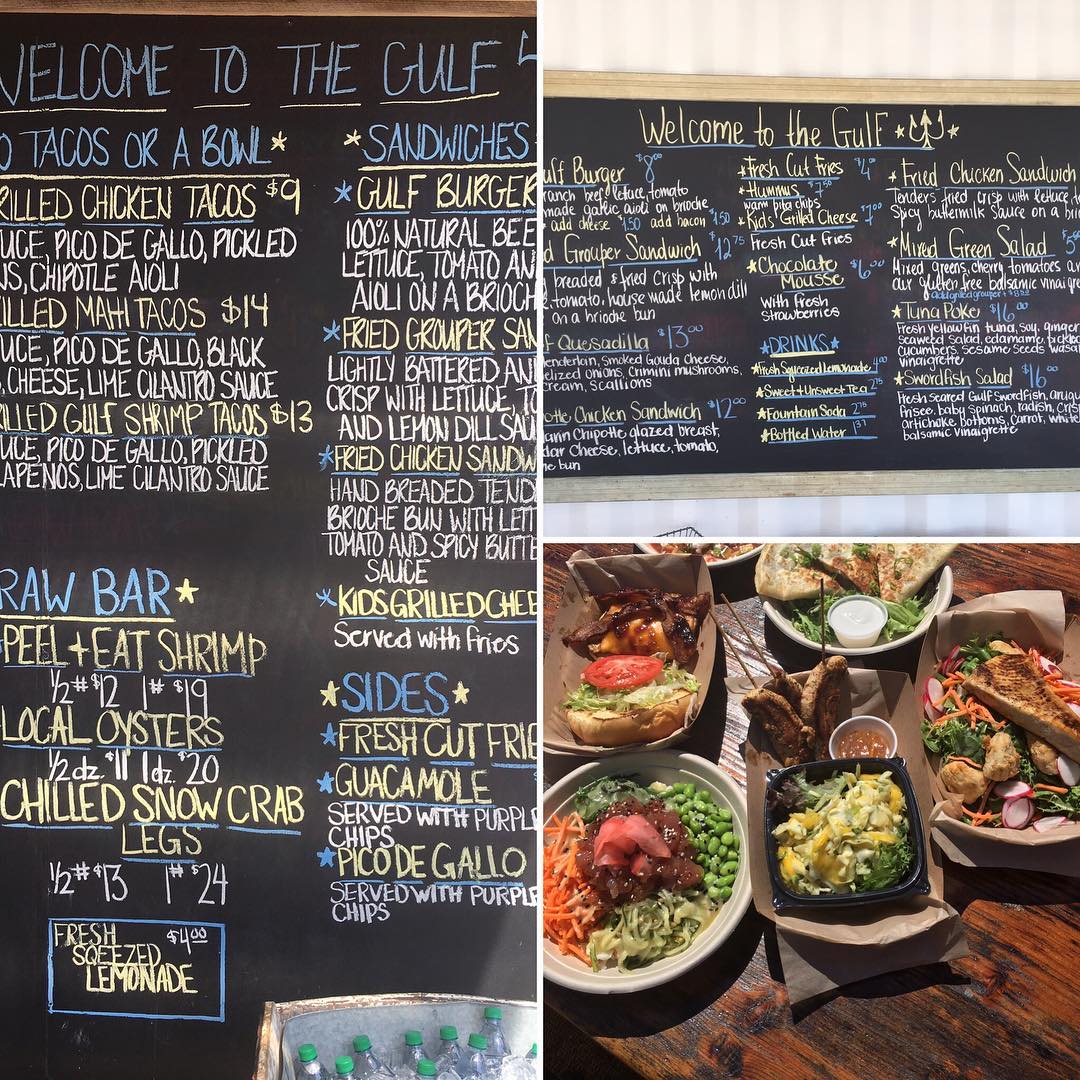 WELCOME TO THE GULF
TACOS OR A BOWL
RILLED CHICKEN TACOS $9
UCE, PICO DE GALLO, PICKLED
NS, CHIPOTLE AIOLI
ILLED MAHI TACOS $14
UCE, PICO DE GALLO, BLACK
CHEESE, LIME CILANTRO SAUCE
ILLED GULF SHRIMP TACOS $13
UCE, PICO DE GALLO, PICKLED
LAPENOS, LIME CILANTRO SAUCE
RAW BAR
PEEL + EAT SHRIMP
1/2# $12 1# $19
LOCAL OYSTERS
1/2 dz. $11 1 dz. $20
CHILLED SNOW CRAB
LEGS
1/2# $13 1# $24
FRESH $4.00
SQEEZED
LEMONADE
SANDWICHES
GULF BURGER
100% NATURAL BEE
LETTUCE, TOMATO AN
AIOLI ON A BRIOCH
FRIED GROUPER SAN
LIGHTLY BATTERED AN
CRISP WITH LETTUCE, TO
AND LEMON DILL SAU
FRIED CHICKEN SANDW
HAND BREADED TEND
BRIOCHE BUN WITH LETT
TOMATO AND SPICY BUTTE
SAUCE
KIDS GRILLED CHEE
Served with fries
SIDES
FRESH CUT FRIE
GUACAMOLE
SERVED WITH PURPLE
CHIPS
PICO DE GALLO
SERVED WITH PURPLE
CHIPS
Welcome to the Gulf
ulf Burger $8
ranch beef, lettuce, tomato
made garlic aioli on brioche
add cheese 1.50 add bacon $1.50
d Grouper Sandwich $12.75
breaded & fried crisp with
tomato, house made lemon dill
on a brioche bun
f Quesadilla $13.00
enderloin, smoked Gouda cheese,
elized onions, crimini mushrooms,
cream, scallions
otle Chicken Sandwich $12.00
Chipotle glazed breast,
dar cheese, lettuce, tomato,
he bun
Fresh Cut Fries $4.00
Hummus $7.50
warm pita chips
Kids' Grilled Cheese $7.00
Fresh Cut Fries
Chocolate $6.00
Mousse
with fresh
strawberries
DRINKS
Fresh Squeezed Lemonade 4.00
Sweet + Unsweet Tea 2.75
Fountain Soda 2.75
Bottled Water
Fried Chicken Sandwich
Tenders fried crisp with lettuce, to
Spicy buttermilk Sauce on a bri
Mixed Green Salad
Mixed greens, cherry tomatoes a
our gluten free balsamic vinaigre
add grilled grouper +
Tuna Poke $16.00
Fresh yellowfin tuna, soy, ginger
seaweed salad, edamame, pickled
cucumbers, sesame seeds wasa
vinaigrette
Swordfish Salad $16.00
Fresh seared Gulf swordfish, arugu
frisee, baby spinach, radish, cris
artichoke bottoms, carrot, white
balsamic vinaigrette